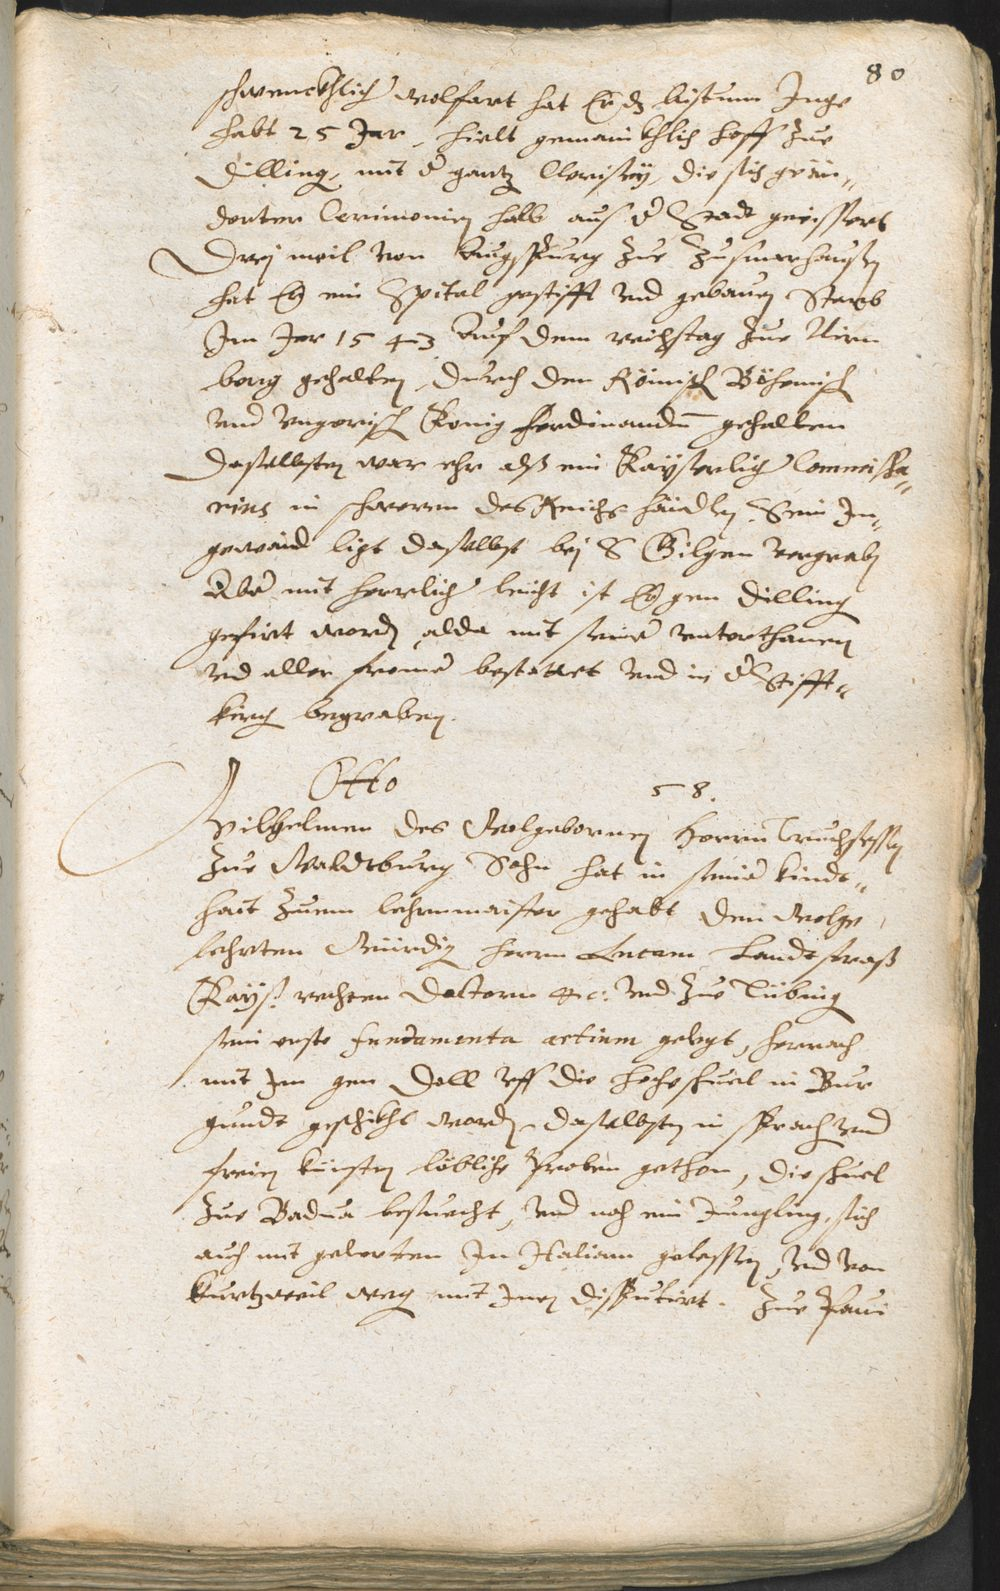 80
schwenckhlich wolfart hat Er dz bistum Inge
habt 25 Jar, hielt gemainkhlich hoff zue
Dilling, mit d' gantz Clerisey, die sich geän„
derter Cerimonien halb aus d' Stadt geeissert
Drej meil von Augspurg zue Zusmarhausen
hat Er ein Spital gestifft vnd gebauen Starb
Im Jar 1543 auf dem reichstag zue Nürn
berg gehalten, durch den Römisch Böhemisch
vnd Vngerisch König Ferdinandum gehalten
daselbsten war ehr alß ein Kayserlich Commissa„
rius in schweren des Reichs händlen. Sein In„
gewaid ligt daselbst bej S Gilgen vergraben
Aber mit herrlich leicht ist Er gen Dilling
gefirt worden alda mit seiner vnterthanen
vnd aller frome' bestattet vnd in d' Stifft„
kirch begraben.
Otto 58.
Wilhelmen des Wolgebornen Herrn Truchsessen
zue Waldtburg Sohn hat in seiner kindt„
hait zuem lehrnmaister gehabt den Wolge
lehrten Würdig herrn Lucam Landtstraß
Kays. rechten Doctorn &c: vnd zue Tübing
sein erste fundamenta artium gelegt, hernach
mit Im gen Doll vff die hocheschuel in Bur
gundt geschikht worden, daselbsten in sprach vnd
freien künsten löbliche Proben gethon, die schuel
zue Badua besuecht, vnd noch ein Jungling, sich
auch mit gelerten In Italiam gelassen, vnd von
kurtzweil weg mit Inen disputirt. Zue Paui